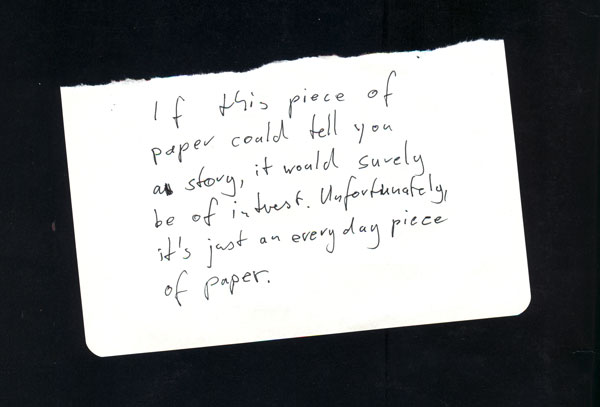 If this piece of
paper could tell you
a story, it would surely
be of intrest. Unfortunately,
it's just an everyday piece
of paper.